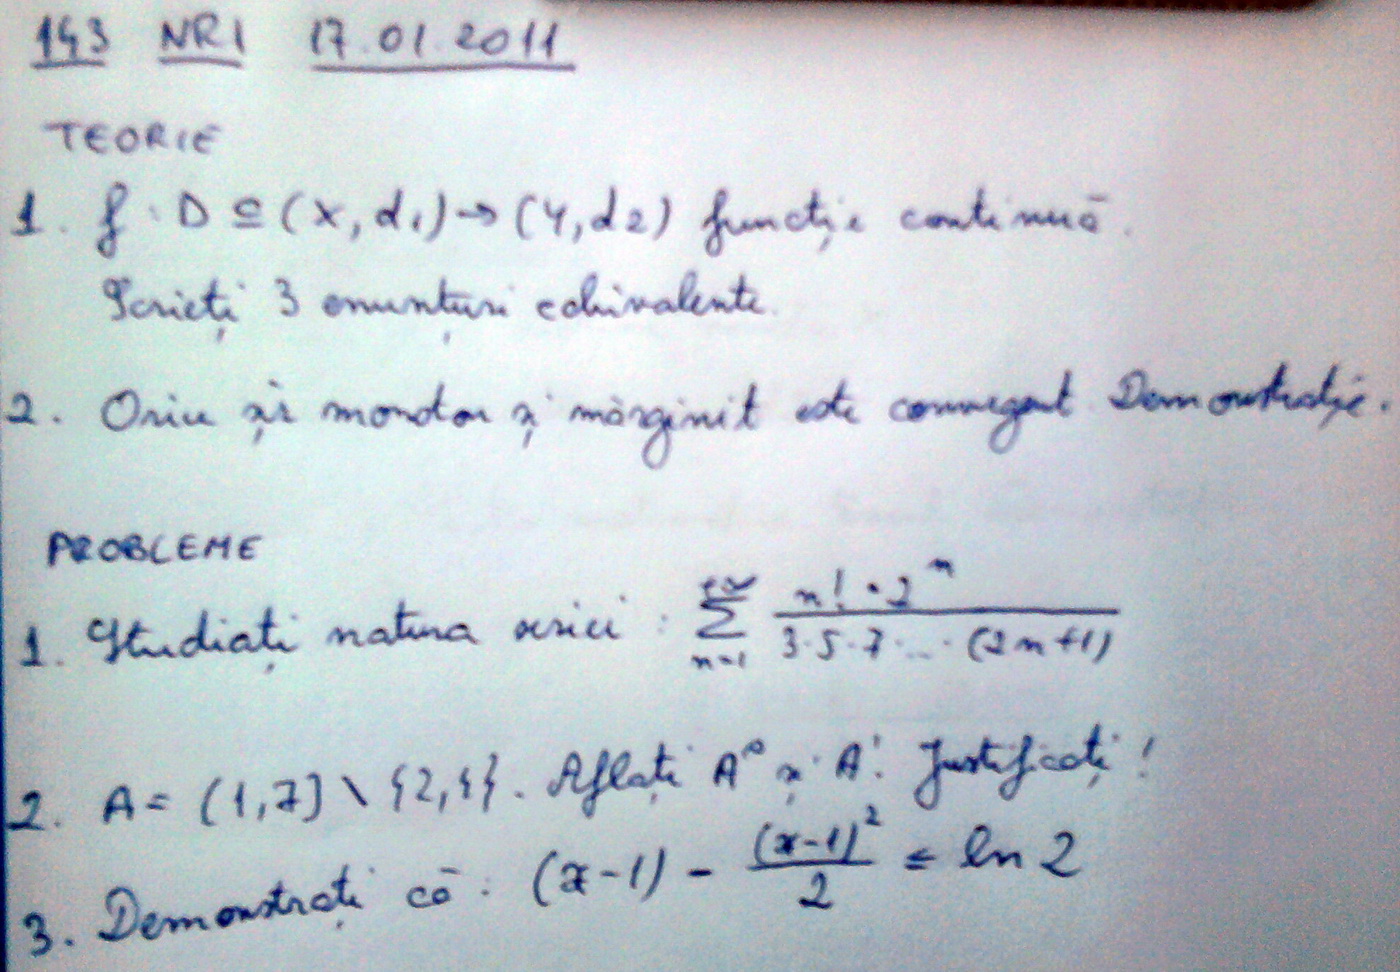 143 NR1 17.01.2011
TEORIE
1. f : D ⊆ (X, d₁) → (Y, d₂) funcție continuă.
Scrieți 3 enunțuri echivalente.
2. Orice șir monoton și mărginit este convergent Demonstrație.
PROBLEME
1. Studiați natura seriei : ∑_{n=1}^{+∞} \frac{n! · 2^n}{3·5·7·...·(2n+1)}
2. A = (1,7] \ {2,4}. Aflați A° și A'. Justificați!
3. Demonstrați că : (x-1) - \frac{(x-1)²}{2} ≤ ln 2